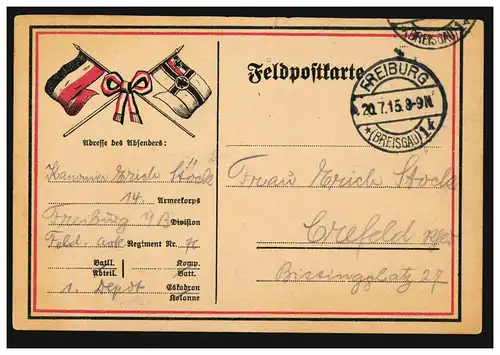 (BREISGAU) 1k
Feldpostkarte
FREIBURG
20.7.15.8-9N.
*(BREISGAU) 1k
Adresse des Absenders:
Kanonier Erich Stock
14. Armeekorps
Freiburg i/B Division
Feld. Regiment Nr. 76
Batll. Komp.
Abteil. Batt.
1. Depot Eskadron
Kolonne
Frau Erich Stock
Crefeld
Bissingplatz 27